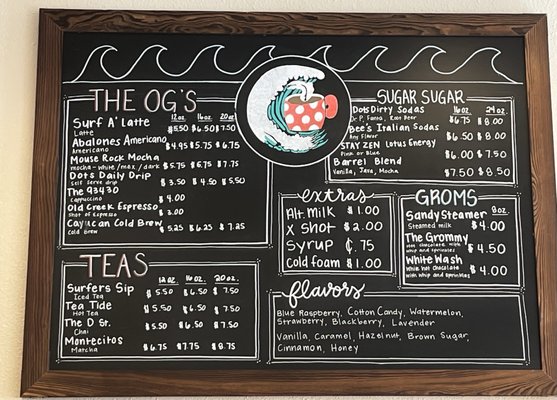 THE OG'S
12oz. 16oz. 20oz
Surf A' Latte
Latte $5.50 $6.50 $7.50
Abalones Americano
Americano $4.95 $5.75 $6.75
Mouse Rock Mocha
mocha - white/mex./dark $5.75 $6.75 $7.75
Dots Daily Drip
Self serve drip $3.50 $4.50 $5.50
The 93430
Cappuccino $4.00
Old Creek Espresso
Shot of Espresso $3.00
Cayucan Cold Brew
Cold Brew $5.25 $6.25 $7.25
TEAS
12oz. 16oz. 20oz.
Surfers Sip
Iced Tea $5.50 $6.50 $7.50
Tea Tide
Hot Tea $5.50 $6.50 $7.50
The D St.
Chai $5.50 $6.50 $7.50
Montecitos
Matcha $6.75 $7.75 $8.75
SUGAR SUGAR
Dots Dirty Sodas 16oz. 24oz.
Dr P, Fanta, Root Beer $6.75 $8.00
Bee's Italian Sodas
Any Flavor $6.50 $8.00
STAY ZEN Lotus Energy
Pink or Blue $6.00 $7.50
Barrel Blend
Vanilla, Java, Mocha $7.50 $8.50
extras
Alt. Milk $1.00
X Shot $2.00
Syrup ¢.75
Cold foam $1.00
GROMS
Sandy Steamer 8oz.
Steamed milk $4.00
The Grommy
Hot chocolate milk
whip and sprinkles $4.50
White Wash
White hot chocolate
with whip and sprinkles $4.00
flavors
Blue Raspberry, Cotton Candy, Watermelon,
Strawberry, Blackberry, Lavender
Vanilla, Caramel, Hazelnut, Brown Sugar,
Cinnamon, Honey